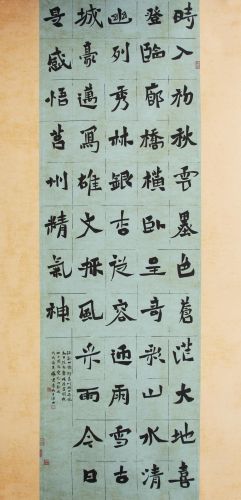 時入初秋雲墨色蒼茫大地喜
登臨廊橋橫臥呈奇彩山水清
幽列秀林銀杏從容迎雨雪古
城豪邁寫雄文採風采雨今日
是感悟莒州精氣神